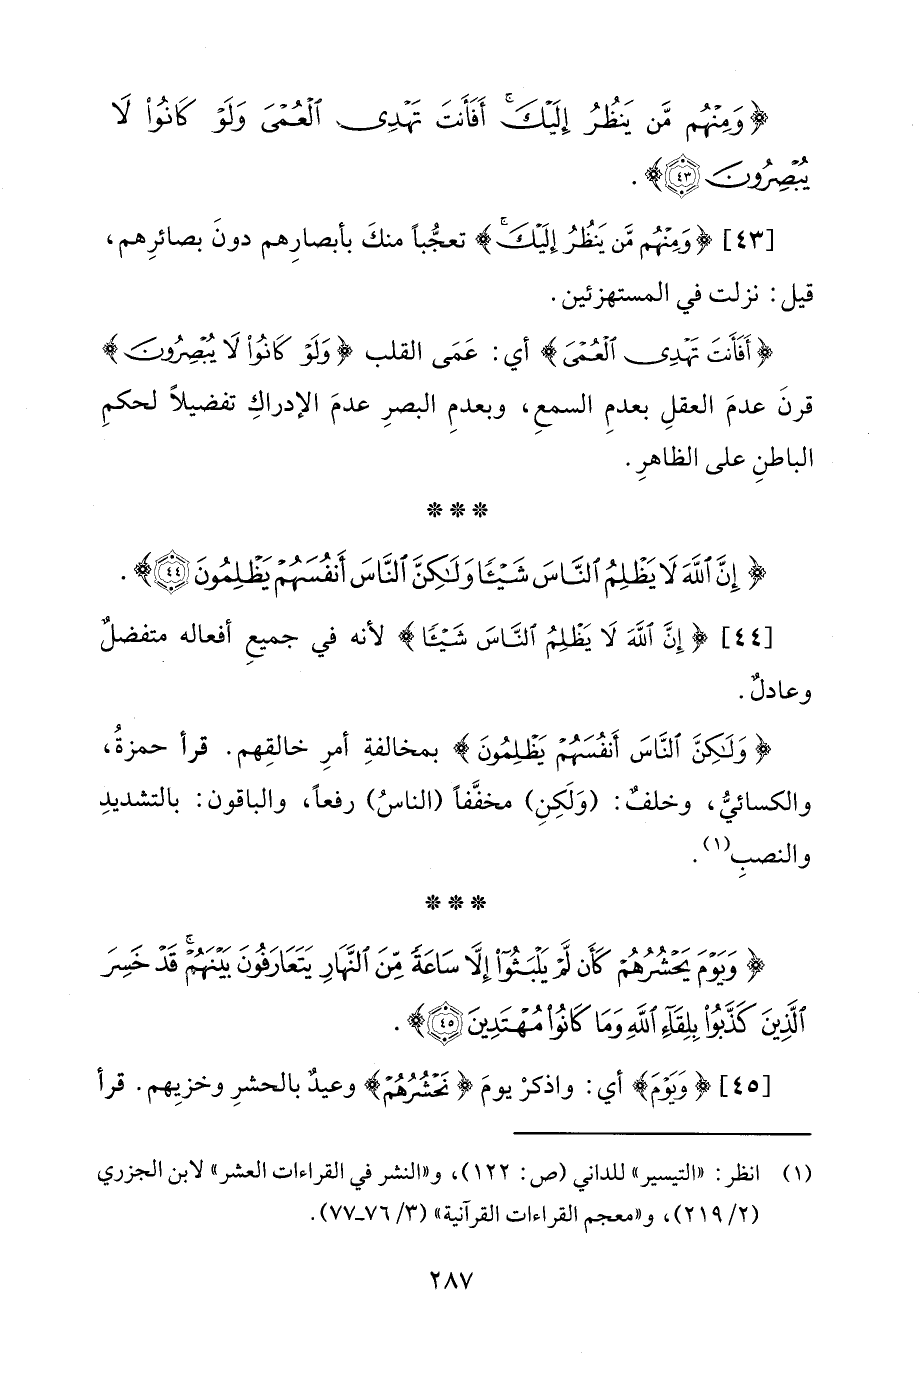 ﴿وَمِنْهُم مَّن يَنظُرُ إِلَيْكَ ۚ أَفَأَنتَ تَهْدِى الْعُمْىَ وَلَوْ كَانُوا۟ لَا
يُبْصِرُونَ ﴿٤٣﴾﴾ .
[٤٣] ﴿وَمِنْهُم مَّن يَنظُرُ إِلَيْكَ ۚ﴾ تعجُّباً منكَ بأبصارِهم دونَ بصائرِهم،
قيل: نزلت في المستهزئين.
﴿أَفَأَنتَ تَهْدِى الْعُمْىَ﴾ أي: عَمَى القلب ﴿وَلَوْ كَانُوا۟ لَا يُبْصِرُونَ﴾
قرنَ عدمَ العقلِ بعدمِ السمعِ، وبعدمِ البصرِ عدمَ الإدراكِ تفضيلاً لحكمِ
الباطنِ على الظاهرِ.
* * *
﴿إِنَّ اللَّهَ لَا يَظْلِمُ النَّاسَ شَيْـًٔا وَلَـٰكِنَّ النَّاسَ أَنفُسَهُمْ يَظْلِمُونَ ﴿٤٤﴾﴾ .
[٤٤] ﴿إِنَّ اللَّهَ لَا يَظْلِمُ النَّاسَ شَيْـًٔا﴾ لأنه في جميعِ أفعاله متفضلٌ
وعادلٌ.
﴿وَلَـٰكِنَّ النَّاسَ أَنفُسَهُمْ يَظْلِمُونَ﴾ بمخالفةِ أمرِ خالقِهم. قرأ حمزةُ،
والكسائيُّ، وخلفٌ: (وَلَكِنِ) مخفَّفاً (الناسُ) رفعاً، والباقون: بالتشديدِ
والنصبِ(١).
* * *
﴿وَيَوْمَ يَحْشُرُهُمْ كَأَن لَّمْ يَلْبَثُوٓا۟ إِلَّا سَاعَةً مِّنَ النَّهَارِ يَتَعَارَفُونَ بَيْنَهُمْ ۚ قَدْ خَسِرَ
الَّذِينَ كَذَّبُوا۟ بِلِقَآءِ اللَّهِ وَمَا كَانُوا۟ مُهْتَدِينَ ﴿٤٥﴾﴾ .
[٤٥] ﴿وَيَوْمَ﴾ أي: واذكرْ يومَ ﴿نَحْشُرُهُمْ﴾ وعيدٌ بالحشرِ وخزيِهم. قرأ
(١) انظر: «التيسير» للداني (ص: ١٢٢)، و«النشر في القراءات العشر» لابن الجزري
(٢/ ٢١٩)، و«معجم القراءات القرآنية» (٣/ ٧٦ـ٧٧).
٢٨٧